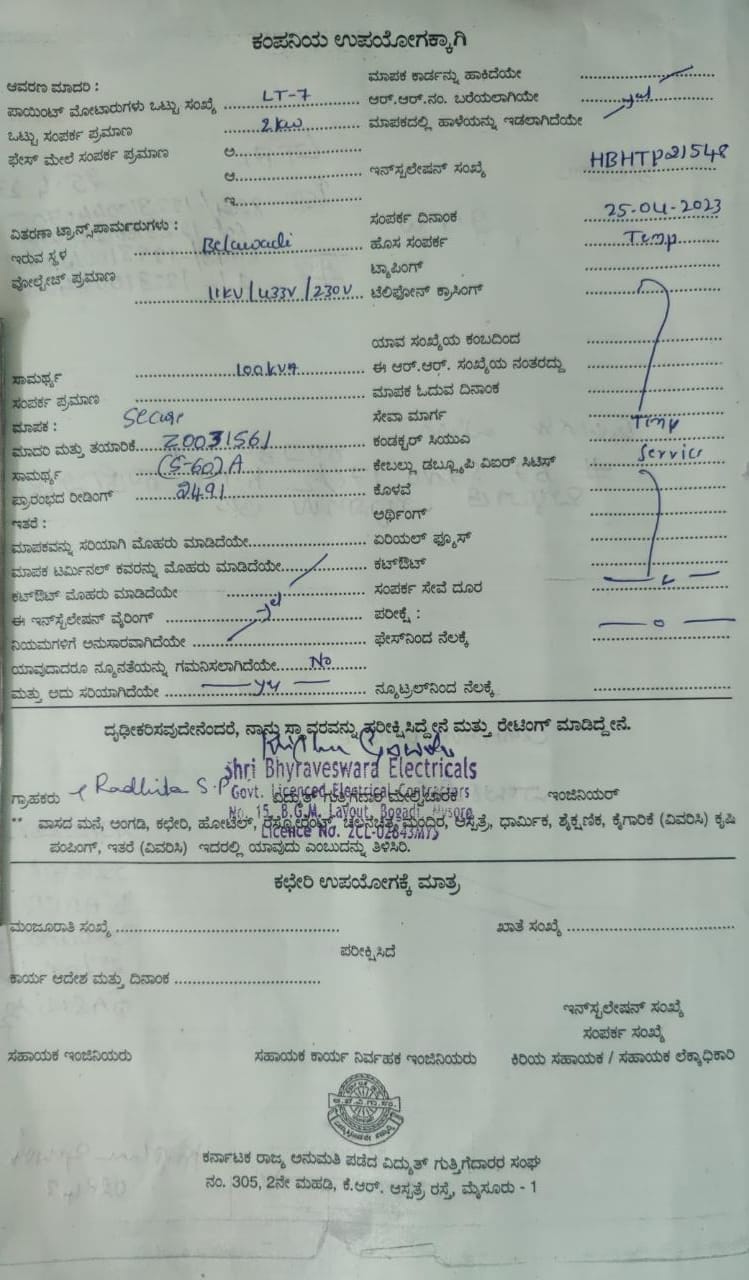 ಕಂಪನಿಯ ಉಪಯೋಗಕ್ಕಾಗಿ
ಆವರಣ ಮಾದರಿ :
ಮಾಪಕ ಕಾರ್ಡನ್ನು ಹಾಕಿದೆಯೇ
ಪಾಯಿಂಟ್ ಮೋಟಾರುಗಳು ಒಟ್ಟು ಸಂಖ್ಯೆ LT-7
ಆರ್.ಆರ್.ನಂ. ಬರೆಯಲಾಗಿಯೇ yes
ಒಟ್ಟು ಸಂಪರ್ಕ ಪ್ರಮಾಣ 2kw
ಮಾಪಕದಲ್ಲಿ ಹಾಳೆಯನ್ನು ಇಡಲಾಗಿದೆಯೇ
ಫೇಸ್ ಮೇಲೆ ಸಂಪರ್ಕ ಪ್ರಮಾಣ ಅ.
ಆ.
ಇನ್‌ಸ್ಟಲೇಷನ್ ಸಂಖ್ಯೆ HBHTP21548
ಇ.
ಸಂಪರ್ಕ ದಿನಾಂಕ 25-04-2023
ವಿತರಣಾ ಟ್ರಾನ್ಸ್‌ಪಾರ್ಮರುಗಳು :
ಇರುವ ಸ್ಥಳ Belawadi
ಹೊಸ ಸಂಪರ್ಕ Temp
ಟ್ಯಾಪಿಂಗ್
ವೋಲ್ಟೇಚ್ ಪ್ರಮಾಣ 11KV/433V/230V
ಟೆಲಿಫೋನ್ ಕ್ರಾಸಿಂಗ್
ಯಾವ ಸಂಖ್ಯೆಯ ಕಂಬದಿಂದ
ಸಾಮರ್ಥ್ಯ 100kVA
ಈ ಆರ್.ಆರ್. ಸಂಖ್ಯೆಯ ನಂತರದ್ದು
ಸಂಪರ್ಕ ಪ್ರಮಾಣ
ಮಾಪಕ ಓದುವ ದಿನಾಂಕ
ಮಾಪಕ : Secure
ಸೇವಾ ಮಾರ್ಗ Temp
ಮಾದರಿ ಮತ್ತು ತಯಾರಿಕೆ Z0031561
ಕಂಡಕ್ಟರ್ ಸಿಯುಎ Service
ಸಾಮರ್ಥ್ಯ (5-60)A
ಕೇಬಲ್ಲು ಡಬ್ಲ್ಯೂಪಿ ವಿಐರ್ ಸಿಟಿಸ್
ಪ್ರಾರಂಭದ ರೀಡಿಂಗ್ 2491
ಕೊಳವೆ
ಇತರೆ :
ಅರ್ಥಿಂಗ್
ಮಾಪಕವನ್ನು ಸರಿಯಾಗಿ ಮೊಹರು ಮಾಡಿದೆಯೇ
ಏರಿಯಲ್ ಫ್ಯೂಸ್
ಮಾಪಕ ಟರ್ಮಿನಲ್ ಕವರನ್ನು ಮೊಹರು ಮಾಡಿದೆಯೇ
ಕಟ್‌ಔಟ್
ಕಟ್‌ಔಟ್ ಮೊಹರು ಮಾಡಿದೆಯೇ
ಸಂಪರ್ಕ ಸೇವೆ ದೂರ
ಈ ಇನ್‌ಸ್ಟಲೇಷನ್ ವೈರಿಂಗ್ yes
ಪರೀಕ್ಷೆ :
ನಿಯಮಗಳಿಗೆ ಅನುಸಾರವಾಗಿದೆಯೇ
ಫೇಸ್‌ನಿಂದ ನೆಲಕ್ಕೆ
ಯಾವುದಾದರೂ ನ್ಯೂನತೆಯನ್ನು ಗಮನಿಸಲಾಗಿದೆಯೇ No
ಮತ್ತು ಅದು ಸರಿಯಾಗಿದೆಯೇ
ನ್ಯೂಟ್ರಲ್‌ನಿಂದ ನೆಲಕ್ಕೆ
ದೃಢೀಕರಿಸವುದೇನೆಂದರೆ, ನಾನು ಸ್ಥಾವರವನ್ನು ಪರೀಕ್ಷಿಸಿದ್ದೇನೆ ಮತ್ತು ರೇಟಿಂಗ್ ಮಾಡಿದ್ದೇನೆ.
Shri Bhyraveswara Electricals
Govt. Licenced Electrical Contractors
ಗ್ರಾಹಕರು Radhika S.P
ವಿದ್ಯುತ್ ಗುತ್ತಿಗೆದಾರ ಮೇಲ್ವಿಚಾರಕ
ಇಂಜಿನಿಯರ್
No. 15, B.G.M. Layout, Bogadi, Mysore
** ವಾಸದ ಮನೆ, ಅಂಗಡಿ, ಕಛೇರಿ, ಹೋಟೆಲ್, ರೆಸ್ಟೋರೆಂಟ್, ಚಲನಚಿತ್ರ ಮಂದಿರ, ಆಸ್ಪತ್ರೆ, ಧಾರ್ಮಿಕ, ಶೈಕ್ಷಣಿಕ, ಕೈಗಾರಿಕೆ (ವಿವರಿಸಿ) ಕೃಷಿ
Licence No. 2CL-02843MYS
ಪಂಪಿಂಗ್, ಇತರೆ (ವಿವರಿಸಿ) ಇದರಲ್ಲಿ ಯಾವುದು ಎಂಬುದನ್ನು ತಿಳಿಸಿರಿ.
ಕಛೇರಿ ಉಪಯೋಗಕ್ಕೆ ಮಾತ್ರ
ಮಂಜೂರಾತಿ ಸಂಖ್ಯೆ
ಖಾತೆ ಸಂಖ್ಯೆ
ಪರೀಕ್ಷಿಸಿದೆ
ಕಾರ್ಯ ಆದೇಶ ಮತ್ತು ದಿನಾಂಕ
ಇನ್‌ಸ್ಟಲೇಷನ್ ಸಂಖ್ಯೆ
ಸಂಪರ್ಕ ಸಂಖ್ಯೆ
ಸಹಾಯಕ ಇಂಜಿನಿಯರು
ಸಹಾಯಕ ಕಾರ್ಯ ನಿರ್ವಹಕ ಇಂಜಿನಿಯರು
ಕಿರಿಯ ಸಹಾಯಕ / ಸಹಾಯಕ ಲೆಕ್ಕಾಧಿಕಾರಿ
ಕರ್ನಾಟಕ ರಾಜ್ಯ ಅನುಮತಿ ಪಡೆದ ವಿದ್ಯುತ್ ಗುತ್ತಿಗೆದಾರರ ಸಂಘ
ನಂ. 305, 2ನೇ ಮಹಡಿ, ಕೆ.ಆರ್. ಆಸ್ಪತ್ರೆ ರಸ್ತೆ, ಮೈಸೂರು - 1